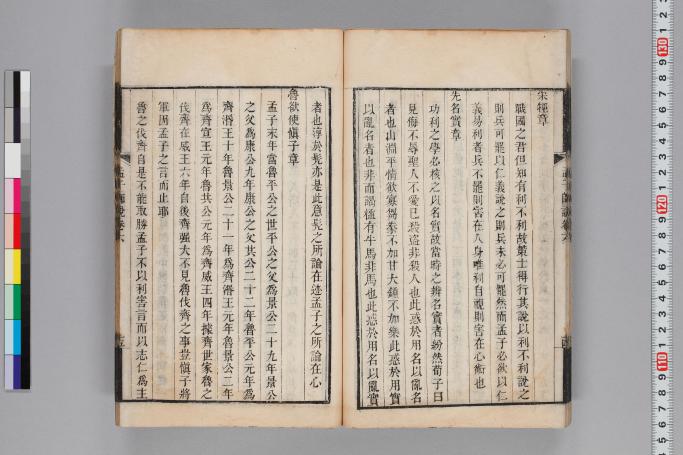 宋牼章
戰國之君但知有利不利故策士得行其說以利不利說之
則兵可罷以仁義說之則兵未必可罷然而孟子必欲以仁
義易利者兵不罷則害在人身唯利自視則害在心術也
先名實章
功利之學必核之以名實故當時之辨名實者紛然荀子曰
見侮不辱聖人不愛己殺盜非殺人也此惑於用名以亂名
者也山淵平情欲寡芻豢不加甘大鐘不加樂此惑於用實
以亂名者也非而謁楹有牛馬非馬也此惑於用名以亂實
孟子師說卷六
者也淳于髡亦是此意髡之所論在迹孟子之所論在心
魯欲使愼子章
孟子末年當魯平公之世平公之父爲景公二十九年景公
之父爲康公九年康公之父共公二十二年魯平公元年爲
齊湣王十年魯景公二十一年爲齊湣王元年魯景公二年
爲齊宣王元年魯共公元年爲齊威王四年據齊世家魯之
伐齊在威王六年自後齊强大不見魯伐齊之事豈愼子將
軍因孟子之言而止耶
魯之伐齊自是不能取勝孟子不以利害言而以志仁爲主
孟子師說卷六